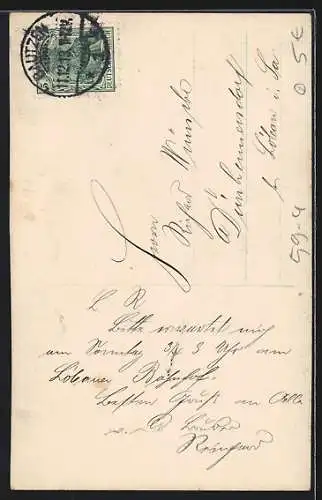 BAUTZEN
11.12.13.
Herrn
Richard Wünsche
Dürrhennersdorf
b. Löbau i. Sa
L R
Bitte erwartet mich
am Sonntag 3/4 3 Uhr am
Löbauer Bahnhof.
Besten Gruß an Alle
Bruder
Reinhard
59-4
0 5€